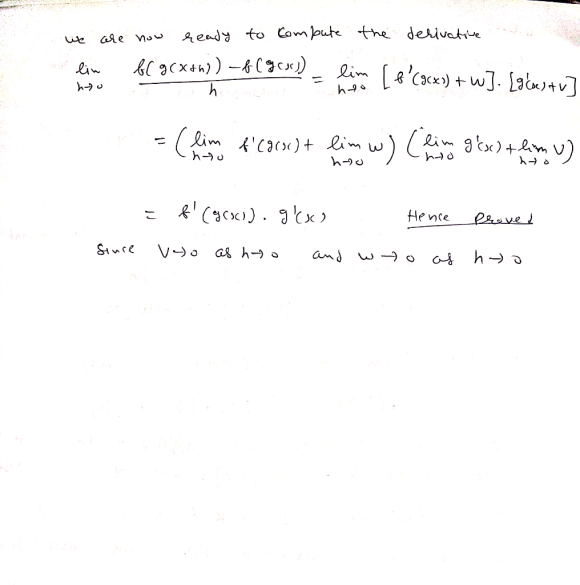 we are now ready to compute the derivative
lim h→0 f(g(x+h)) - f(g(x)) / h = lim h→0 [f'(g(x)) + w]. [g'(x)+v]
= (lim h→0 f'(g(x)) + lim h→0 w) (lim h→0 g'(x) + lim h→0 v)
= f'(g(x)). g'(x) Hence proved
Since v→0 as h→0 and w→0 as h→0